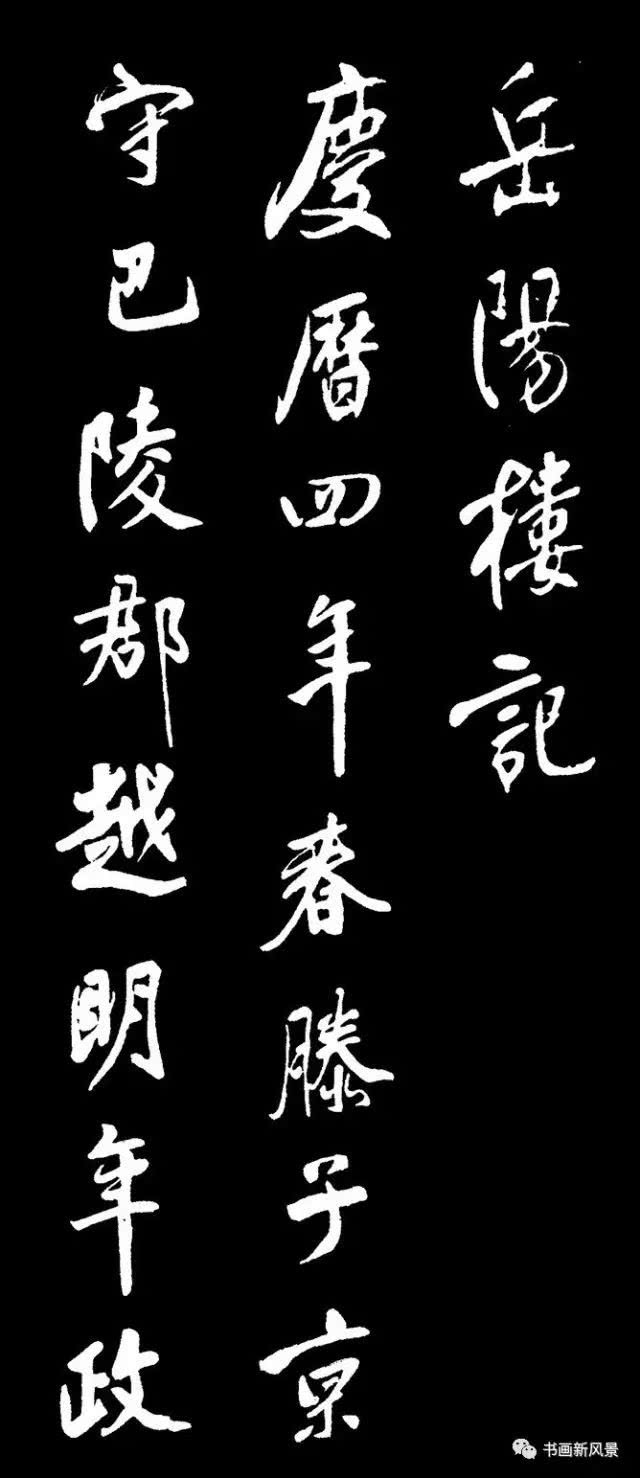 岳陽樓記
慶曆四年春滕子京
守巴陵郡越明年政
书画新风景